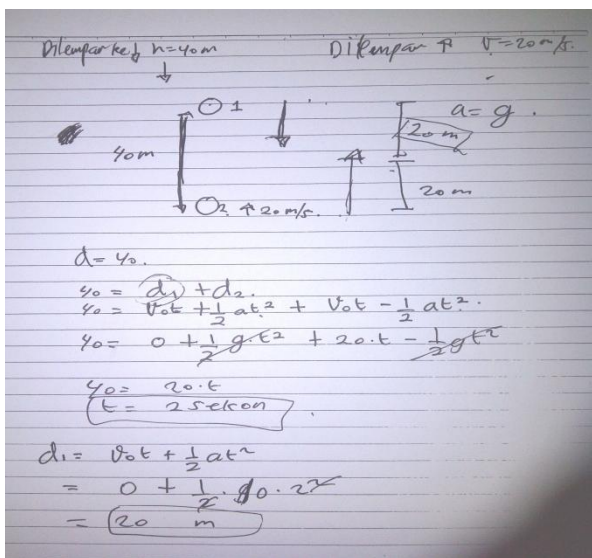 Dilempar ke ↓ h=40m
Dilempar ↑ v=20m/s.
↓
1
a= g.
20 m
40m
2 ↑ 20 m/s.
20 m
d= 40.
40 = d1 + d2.
40 = Vot + 1/2 at² + Vot - 1/2 at².
40= 0 + 1/2 g.t² + 20.t - 1/2 gt²
40= 20.t
t= 2 sekon
d1= Vot + 1/2 at²
= 0 + 1/2 . 10 . 2²
= 20 m